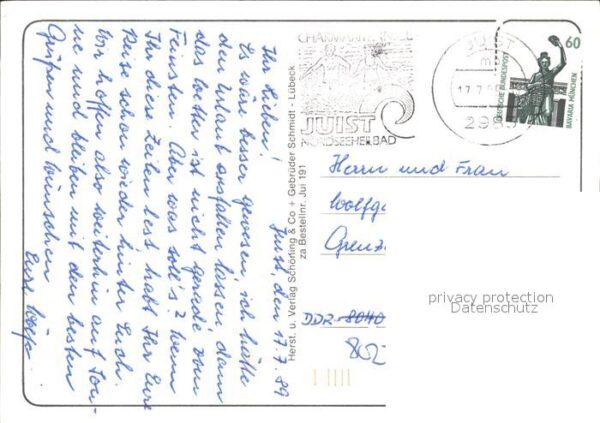 Juist, den 17.7.89
Ihr Lieben!
Es wäre besser gewesen, ich hätte
den Urlaub ausfallen lassen denn
das Wetter ist nicht gerade vom
Feinsten. Aber was soll's? Wenn
Ihr diese Zeilen lest habt Ihr Eure
Reise schon wieder hinter Euch.
Wir hoffen also weiterhin auf Son-
ne und bleiben mit den besten
Grüßen und Wünschen
Eure
Herst. u. Verlag Schöning & Co + Gebrüder Schmidt - Lübeck
za Bestellnr. Jui 191
JUIST
NORDSEEHEILBAD
17.7.
60
DEUTSCHE BUNDESPOST
BAVARIA MÜNCHEN
Herrn und Frau
Wolfg
Grenz
DDR-8040
802
privacy protection
Datenschutz